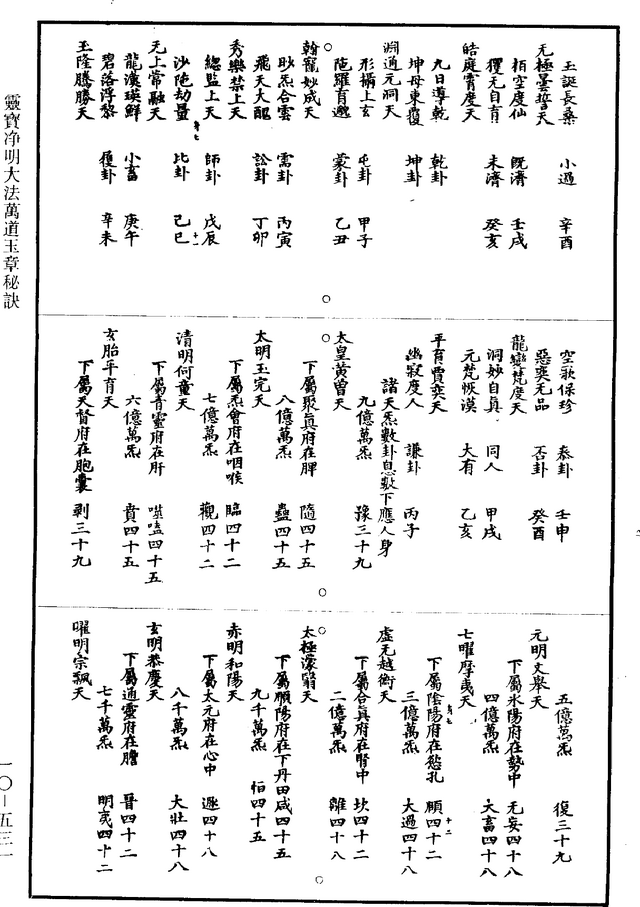 靈寶淨明大法萬道玉章秘訣
玉誕長桑　小過　辛酉
无極曇誓天
栢空度仙　既濟　壬戌
玃无自育　未濟　癸亥
皓庭霄度天
九日導乾　乾卦
坤母東覆　坤卦
淵通元洞天
形攝上玄　屯卦　甲子
陁羅育邈　蒙卦　乙丑
翰寵妙成天
眇炁合雲　需卦　丙寅
飛天大醜　訟卦　丁卯
秀樂禁上天
總監上天　師卦　戊辰
沙陁劫量　比卦　己巳
无上常融天
龍漢瑛鮮　小畜　庚午
碧落浮黎　履卦　辛未
玉隆騰勝天
空歌保珍　泰卦　壬申
惡奕无品　否卦　癸酉
龍變梵度天
洞妙自真　同人　甲戌
元梵恢漠　大有　乙亥
平育賈奕天
幽寂度人　謙卦　丙子
諸天炁數卦息數下應人身
九億萬炁　豫三十九
太皇黃曾天
下屬聚真府在脾　隨四十五
八億萬炁　蠱四十五
太明玉完天
下屬炁會府在咽喉　臨四十二
七億萬炁　觀四十二
清明何童天
下屬青靈府在肝　噬嗑四十五
六億萬炁　賁四十五
玄胎平育天
下屬天督府在胞囊　剝三十九
五億萬炁　復三十九
元明文舉天
下屬水陽府在勢中　无妄四十八
四億萬炁　大畜四十八
七曜摩夷天
下屬陰陽府在慾孔　頤四十二
三億萬炁　大過四十八
虛无越衡天
下屬合真府在腎中　坎四十二
二億萬炁　離四十八
太極濛翳天
下屬順陽府在下丹田　咸四十五
九千萬炁　恒四十五
赤明和陽天
下屬太元府在心中　遯四十八
八千萬炁　大壯四十八
玄明恭慶天
下屬通靈府在膽　晉四十二
七千萬炁　明夷四十二
曜明宗飄天
一〇－五三一